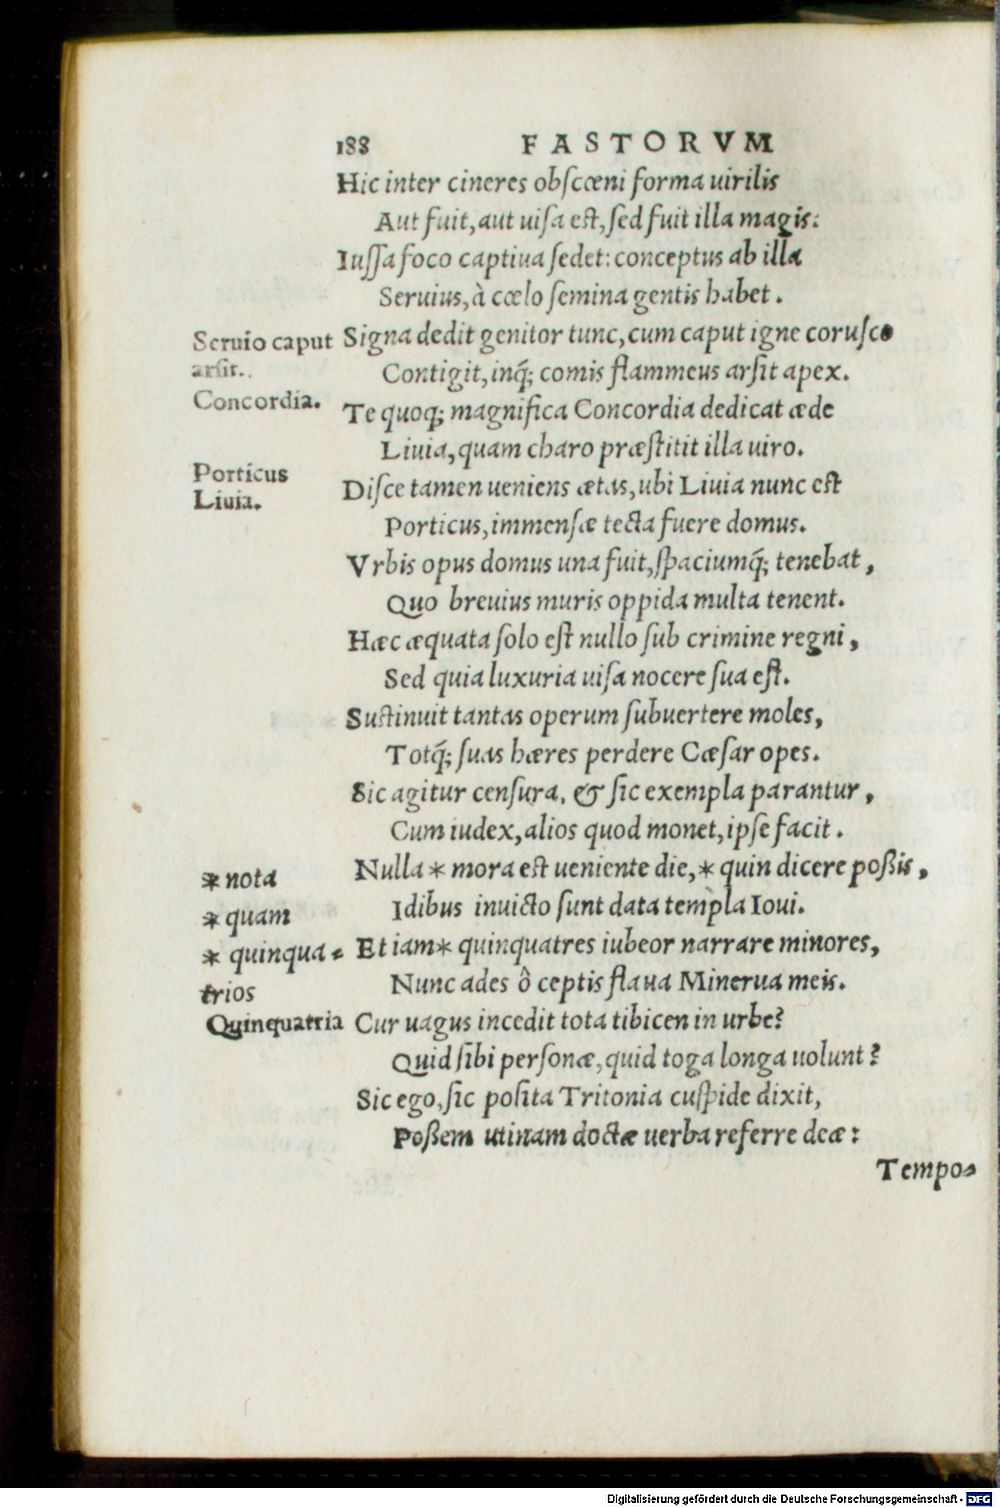 188 FASTORVM
Hic inter cineres obſcœni forma uirilis
Aut fuit, aut uiſa eſt, ſed fuit illa magis:
Iuſſa foco captiua ſedet: conceptus ab illa
Seruius, à cœlo ſemina gentis habet.
Seruio caput
arſit.
Signa dedit genitor tunc, cum caput igne coruſco
Contigit, inq́; comis flammeus arſit apex.
Concordia.
Te quoq; magnifica Concordia dedicat æde
Liuia, quam charo præſtitit illa uiro.
Porticus
Liuia.
Diſce tamen ueniens ætas, ubi Liuia nunc eſt
Porticus, immenſæ tecta fuere domus.
Vrbis opus domus una fuit, ſpaciumq́; tenebat,
Quo breuius muris oppida multa tenent.
Hæc æquata ſolo eſt nullo ſub crimine regni,
Sed quia luxuria uiſa nocere ſua eſt.
Suſtinuit tantas operum ſubuertere moles,
Totq́; ſuas hæres perdere Cæſar opes.
Sic agitur cenſura, & ſic exempla parantur,
Cum iudex, alios quod monet, ipſe facit.
* nota
Nulla * mora eſt ueniente die, * quin dicere poßis,
* quam
Idibus inuicto ſunt data templa Ioui.
* quinqua-
trios
Et iam * quinquatres iubeor narrare minores,
Nunc ades ô ceptis flaua Minerua meis.
Quinquatria
Cur uagus incedit tota tibicen in urbe?
Quid ſibi perſonæ, quid toga longa uolunt?
Sic ego, ſic poſita Tritonia cuſpide dixit,
Poßem utinam doctæ uerba referre deæ:
Tempo-
Digitalisierung gefördert durch die Deutsche Forschungsgemeinschaft - DFG